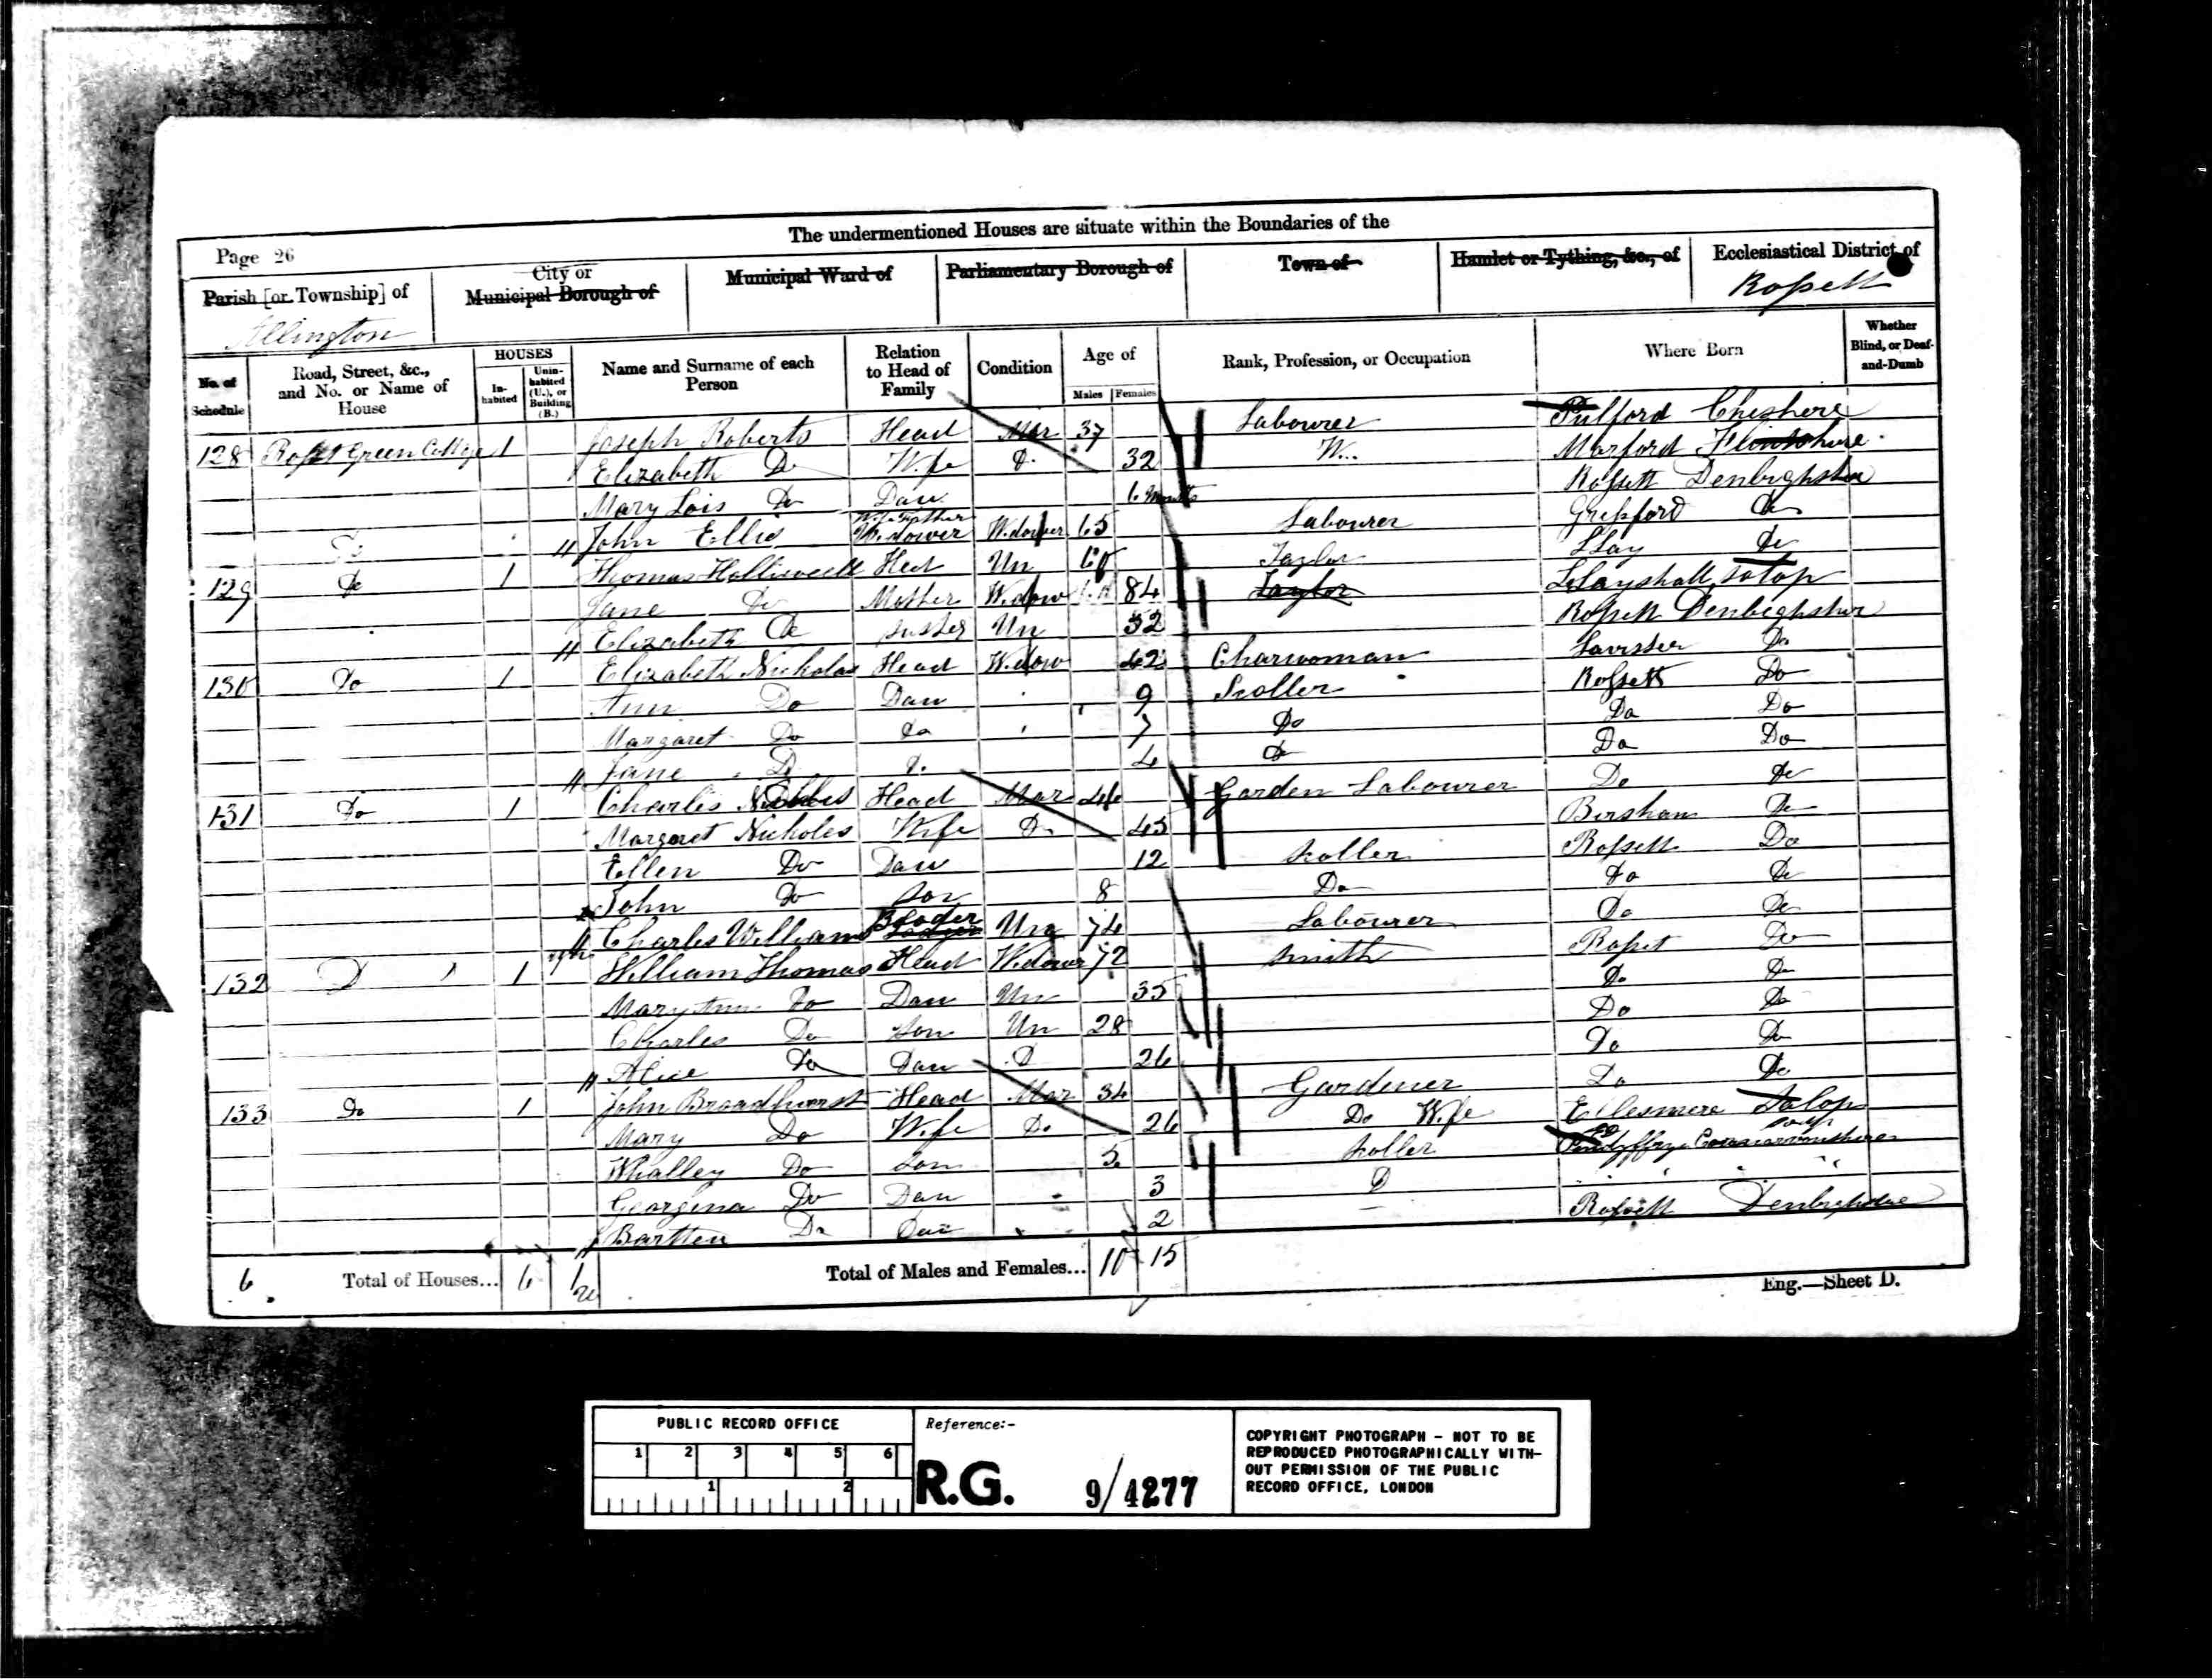 The undermentioned Houses are situate within the Boundaries of the
Page 26
Parish [or Township] of
Allington
City or
Municipal Borough of
Municipal Ward of
Parliamentary Borough of
Town of
Hamlet or Tything, &c., of
Ecclesiastical District of
Rossett
No. of Schedule
Road, Street, &c., and No. or Name of House
HOUSES
In-habited
Unin-habited (U.), or Building (B.)
Name and Surname of each Person
Relation to Head of Family
Condition
Age of
Males Females
Rank, Profession, or Occupation
Where Born
Whether Blind, or Deaf-and-Dumb
128 Green 1 Joseph Roberts Head Mar 37 Labourer Pulford Cheshere
Elizabeth Do Wife Do 32 Marford Flintshire
Mary Lois Do Dau 6 Months Rossett Denbighshire
Do John Ellis Wife Father Widower Widower 65 Labourer Gresford Do
129 Do 1 Thomas Holliwell Head Un Taylor Llay Do
Jane Do Mother Widow 84 Taylor Salop
Elizabeth Do Sister Un 52 Rossett Denbighshire
130 Do 1 Elizabeth Nicholas Head Widow 42 Charwoman Do
Ann Do Dau 9 Scoller Rossett Do
Margaret Do Do 7 Do Do Do
Jane Do Do 4 Do Do Do
131 Do 1 Charles Head Mar 44 Garden Labourer Do Do
Margaret Nicholes Wife Do 45 Bersham Do
Ellen Do Dau 12 Scoller Rossett Do
John Do Son 8 Do Do Do
Charles Williams Un 74 Labourer Do Do
132 Do 1 William Thomas Head Widower 72 Smith Rosset Do
Mary Ann Do Dau Un 35 Do Do
Charles Do Son Un 28 Do Do
Alice Do Dau Do 26 Do Do
133 Do 1 John Broadhurst Head Mar 34 Gardener Do Do
Mary Do Wife Do 26 Do Wife Ellesmere Salop
Whalley Do Son 5 Scoller Carnarvonshire
Georgina Do Dau 3 D
Do Dau 2 Rossett Denbighshire
6 Total of Houses... 6 Total of Males and Females... 10 15
Eng.—Sheet D.
PUBLIC RECORD OFFICE
1 2 3 4 5 6
1 2
Reference:-
R.G. 9/4277
COPYRIGHT PHOTOGRAPH - NOT TO BE
REPRODUCED PHOTOGRAPHICALLY WITH-
OUT PERMISSION OF THE PUBLIC
RECORD OFFICE, LONDON